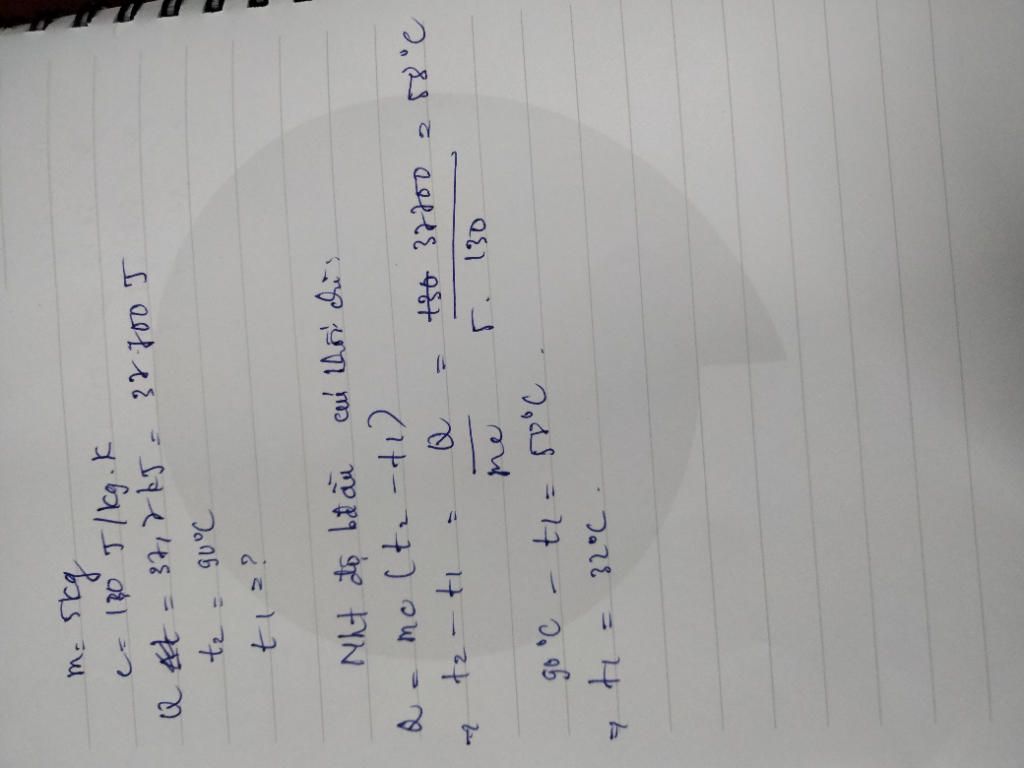 m = 5kg
c = 130 J/kg.K
Q = 37,7 kJ = 37700 J
t2 = 90°C
t1 = ?
Nht độ bđầu của khối chì:
Q = mc (t2 - t1)
=> t2 - t1 = Q/mc = 37700/5.130 = 58°C
90°C - t1 = 58°C.
=> t1 = 32°C.